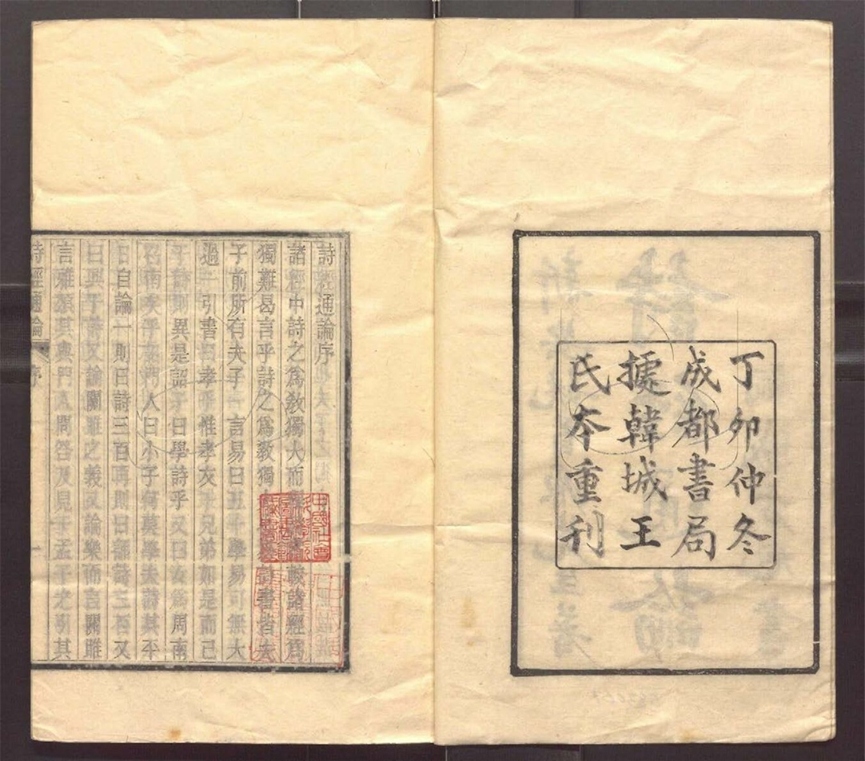 丁卯仲冬
成都書局
據韓城王
氏本重刋
詩經通論序
諸經中詩之爲敎獨大而釋詩者較諸經爲
獨難曷言乎詩之爲敎獨大易詩書皆夫
子前所有夫子一言易曰五十學易可無大
過一引書曰孝乎惟孝友于兄弟如是而已
于詩則異是謂子曰學詩乎又曰女爲周南
召南矣乎謂門人曰小子何莫學夫詩其平
日自論一則曰詩三百再則曰誦詩三百又
曰興于詩又論關雎之義又論樂而言關雎
言雅頌其與門人問答及見于孟子之引其
詩經通論
序
一